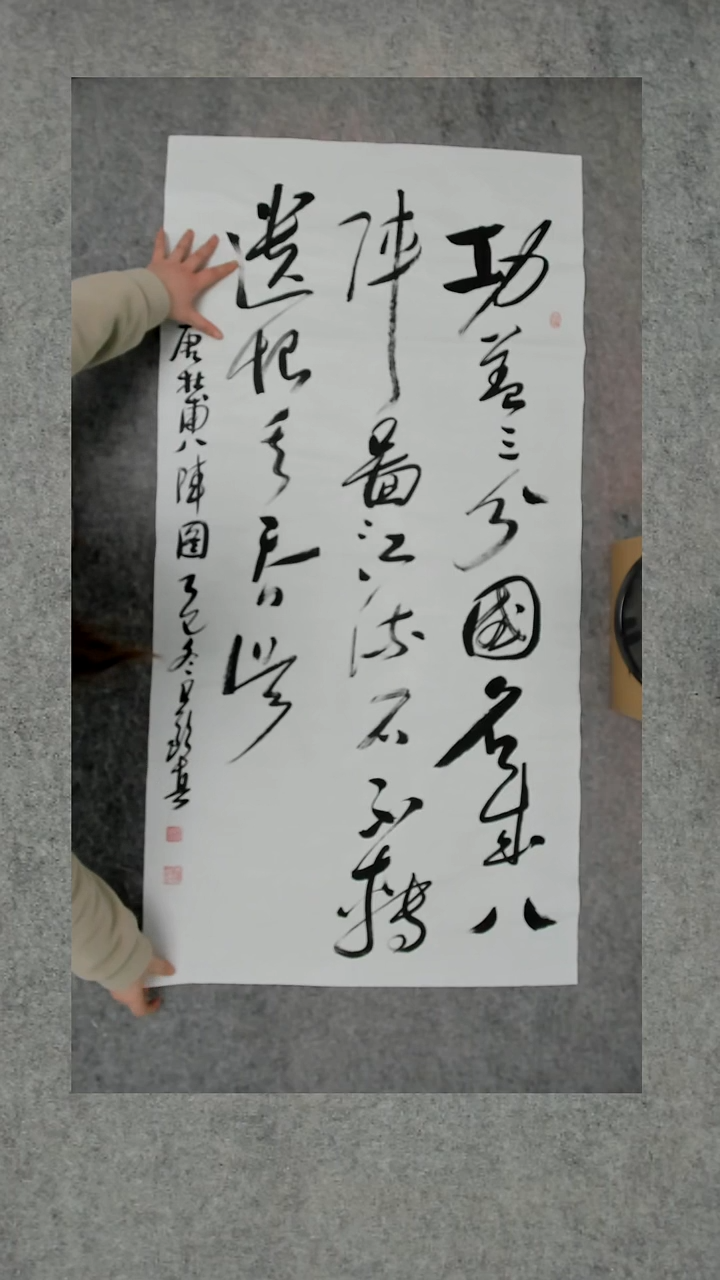 功蓋三分國名成八
陣圖江流石不轉
遺恨失吞吳
唐杜甫八陣圖乙巳冬真